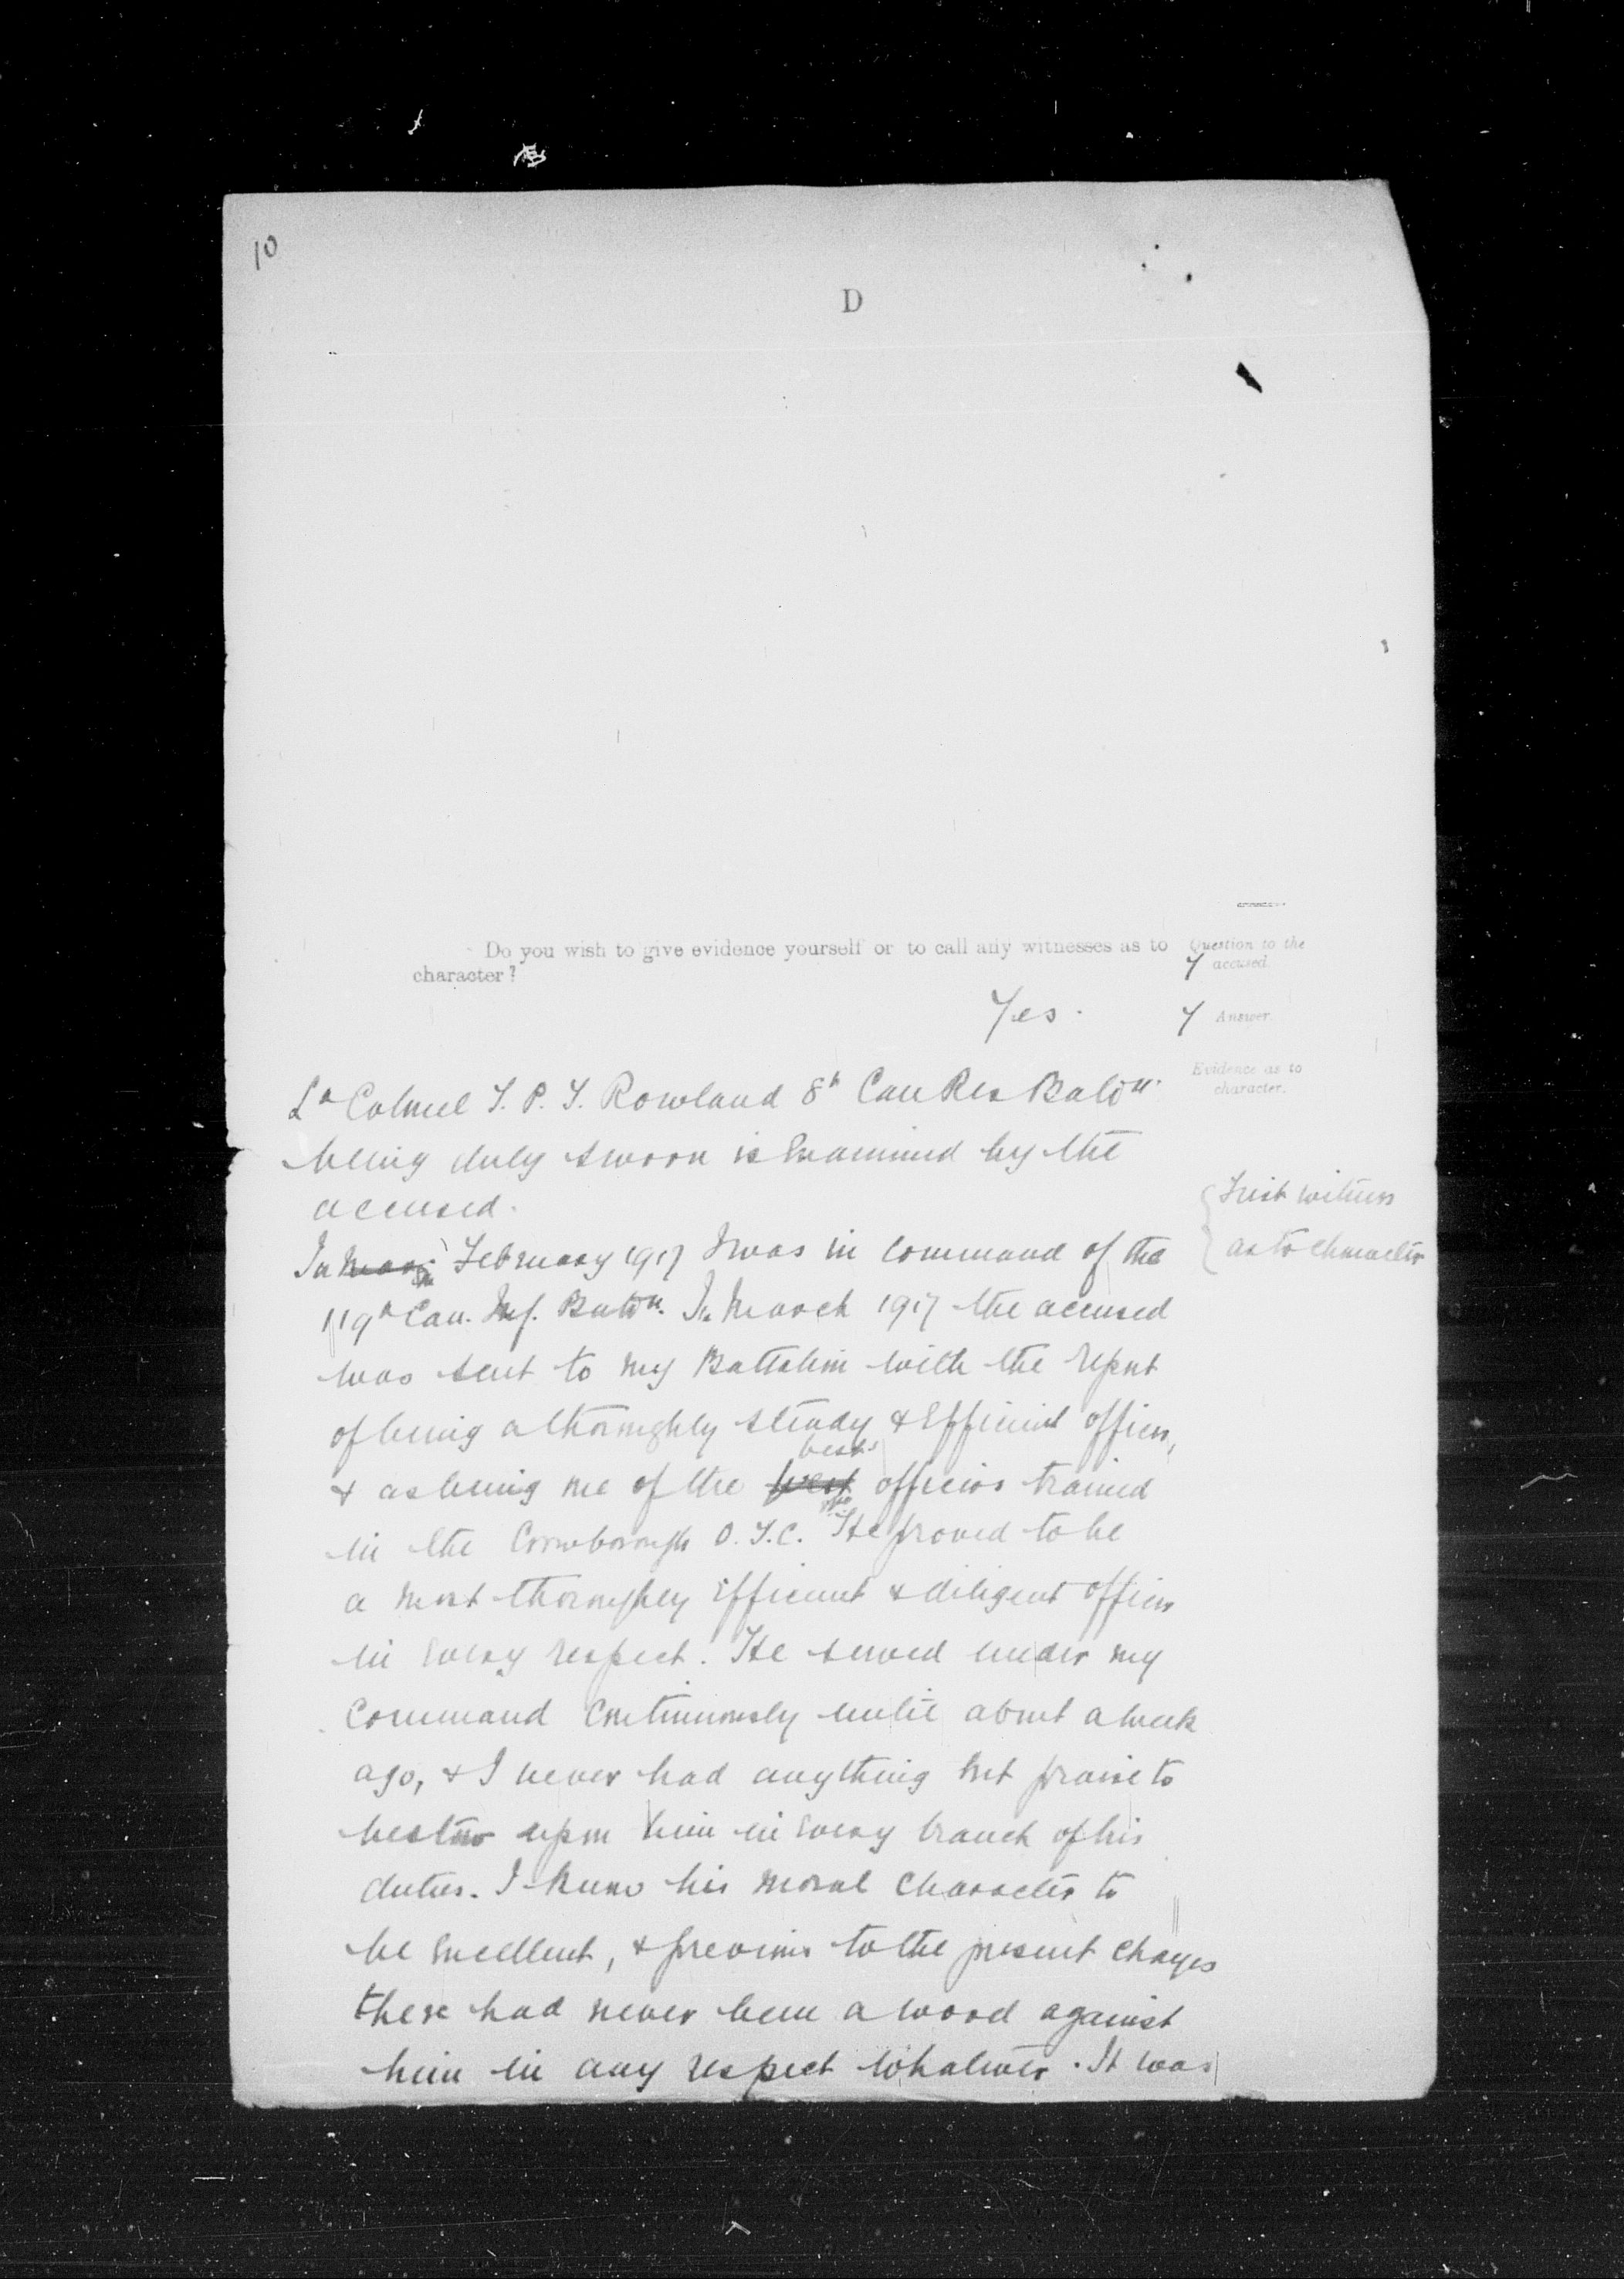 10
D
Do you wish to give evidence yourself or to call any witnesses as to
character?
Question to the
accused.
Yes.
Answer.
Evidence as to
character.
Lt Colonel T. P. T. Rowland 8th Can Res Battn.
being duly sworn is Examined by the
accused.
First witness
as to character
In February 1917 I was in command of the
119th Can. Inf. Battn. In March 1917 the accused
was sent to my Battalion with the report
of being a thoroughly steady & Efficient officer,
& as being one of the best officers trained
in the Crowborough O.T.C. He proved to be
a most thoroughly Efficient & diligent officer
in Every respect. He served under my
Command Continuously until about a week
ago, & I never had anything but praise to
bestow upon him in Every branch of his
duties. I know his moral Character to
be Excellent, & previous to the present Charges
there had never been a word against
him in any respect whatever. It was